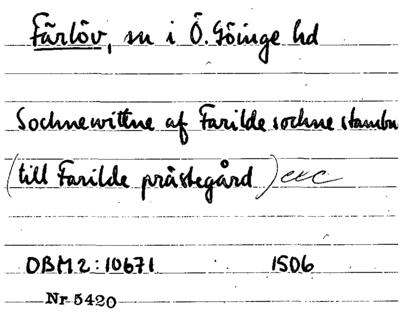 Färlöv, sn i Ö. Göinge hd
Sochnewittne af Farilde sochne stambu
(till Farilde prästegård) exc
DBM 2:10671 1506
Nr 5420